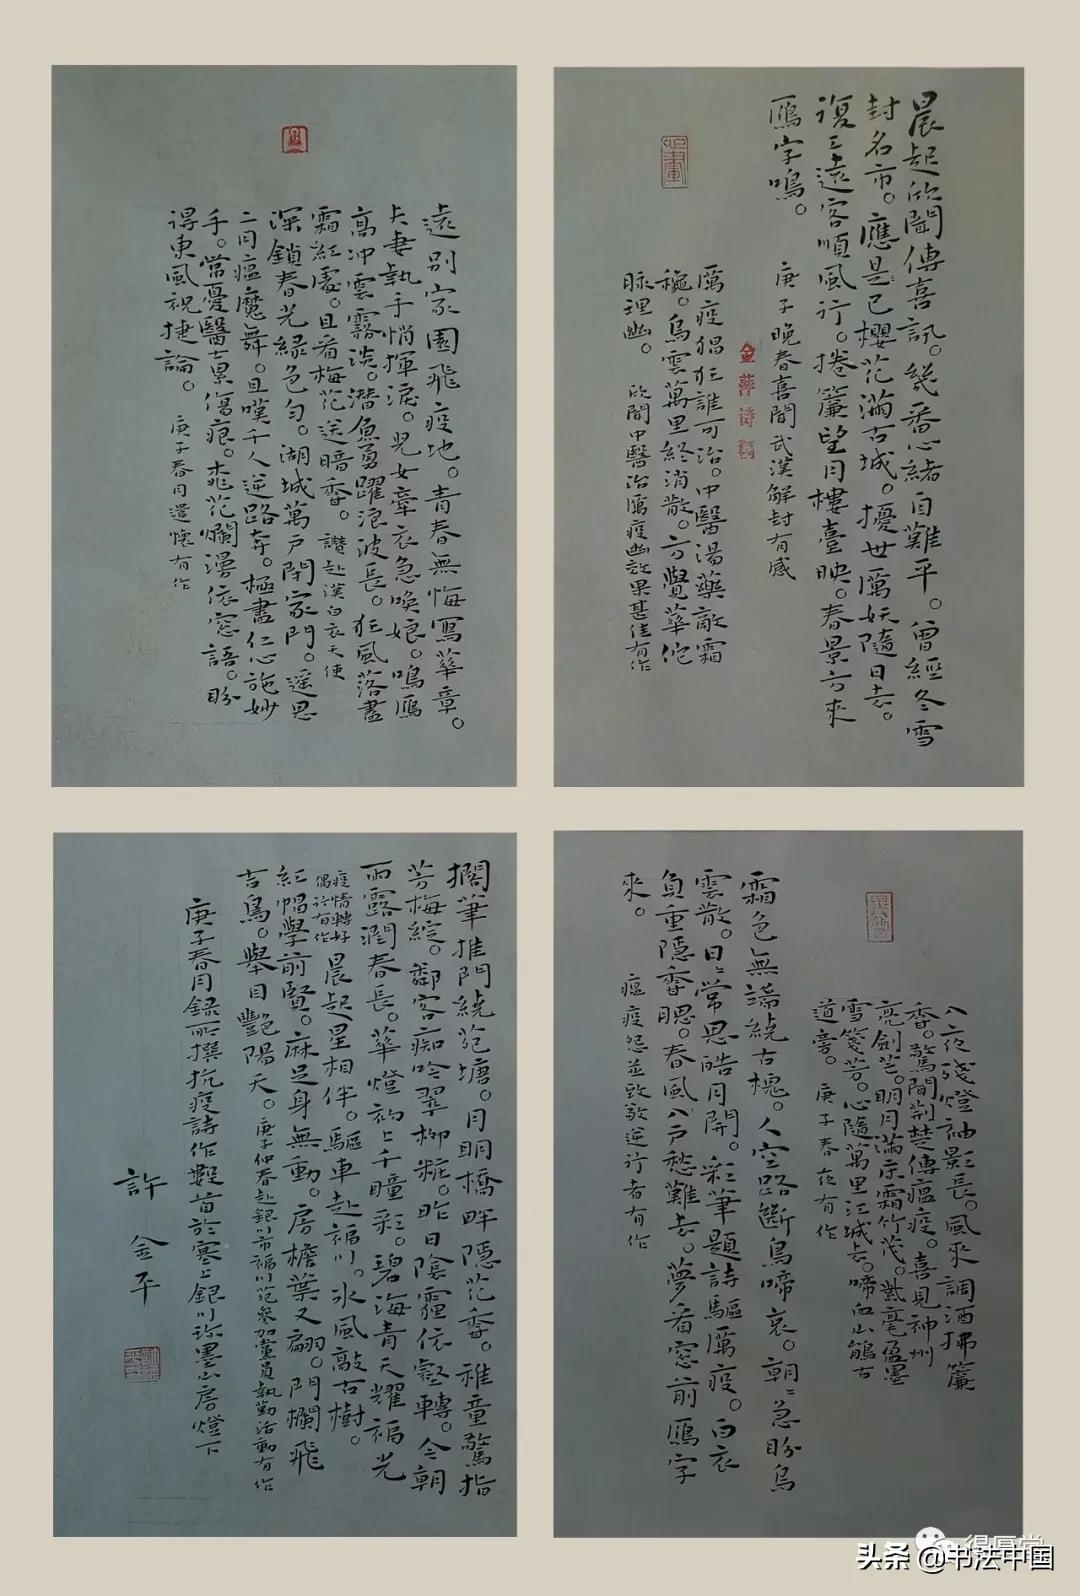 晨起欣聞傳喜訊。幾番心緒自難平。曾經冬雪
封名市。應是已櫻花滿古城。擾世厲妖隨日去。
復三遠客順風行。捲簾望月樓臺映。春景方來
鴈字鳴。
庚子晚春喜聞武漢解封有感
金萍诗稿
厲疫猖狂誰可治。中醫湯藥敵霜
穐。烏雲萬里終消散。方覺華佗
脉理幽。
欣聞中醫治厲疫幽效果甚佳有作
遠別家園飛疫地。青春無悔寫華章。
夫妻執手悄揮淚。兒女牽衣急喚娘。鳴鴈
高沖雲霧淡。潛魚勇躍浪波長。狂風落盡
霜紅處。且看梅花送暗香。讚赴漢白衣天使
深鎖春光綠色勻。湖城萬戶閉家門。遥思
二月瘟魔舞。且嘆千人逆路奔。極盡仁心施妙
手。常憂醫士累傷痕。桃花爛漫依窓語。盼
得東風祝捷論。
庚子春月遣懷有作
八夜殘燈袖影長。風來調酒拂簾
香。驚聞荆楚傳瘟疫。喜見神州
亮劍芒。明月滿宗霜竹茂。紫毫盈墨
雪箋芳。心隨萬里江城去。啼血山鵑古
道旁。庚子春夜有作
霜色無端繞古槐。人空路斷鳥啼哀。朝〻急盼烏
雲散。日〻常思皓月開。彩筆題詩驅厲疫。白衣
負重隱香腮。春風八戶愁難去。夢看窓前鴈字
來。
瘟疫怨並致敬逆行者有作
擱筆推門繞苑塘。月明橋畔隱花香。稚童驚指
芳梅綻。鄰客痴吟翠柳粧。昨日陰霾依壑轉。今朝
雨露潤春長。華燈初上千瞳彩。碧海青天耀福光
疫情轉好
偶訪有作
晨起星相伴。驅車赴福川。冰風敲古樹。
紅帽學前賢。麻足身無動。房檐葉又翩。門欄飛
吉鳥。舉目艷陽天。庚子仲春赴銀川市福川苑參加黨員執勤活動有作
庚子春月録所撰抗疫詩作數首於塞上銀川珎墨山房燈下
許金平
头条 @书法中国